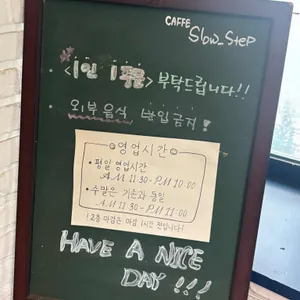 CAFFE
Slow_Step
<1인 1주문> 부탁드립니다!!
외부음식 반입금지!
영업시간
• 평일 영업시간
A.M 11:30 - P.M 10:00
• 주말은 기존과 동일
A.M 11:30 - P.M 11:00
(2층 마감은 마감 1시간 전입니다)
HAVE A NICE
DAY!!!